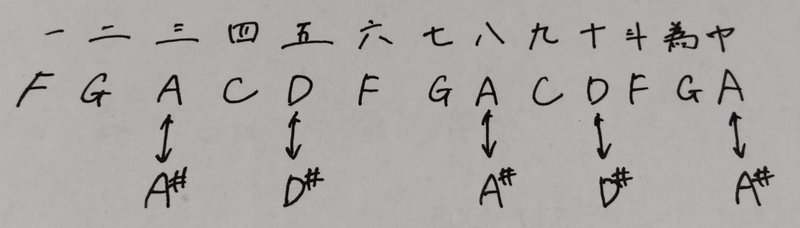 一 二 三 四 五 六 七 八 九 十 斗 為 巾
F G A C D F G A C D F G A
A# D# A# D# A#